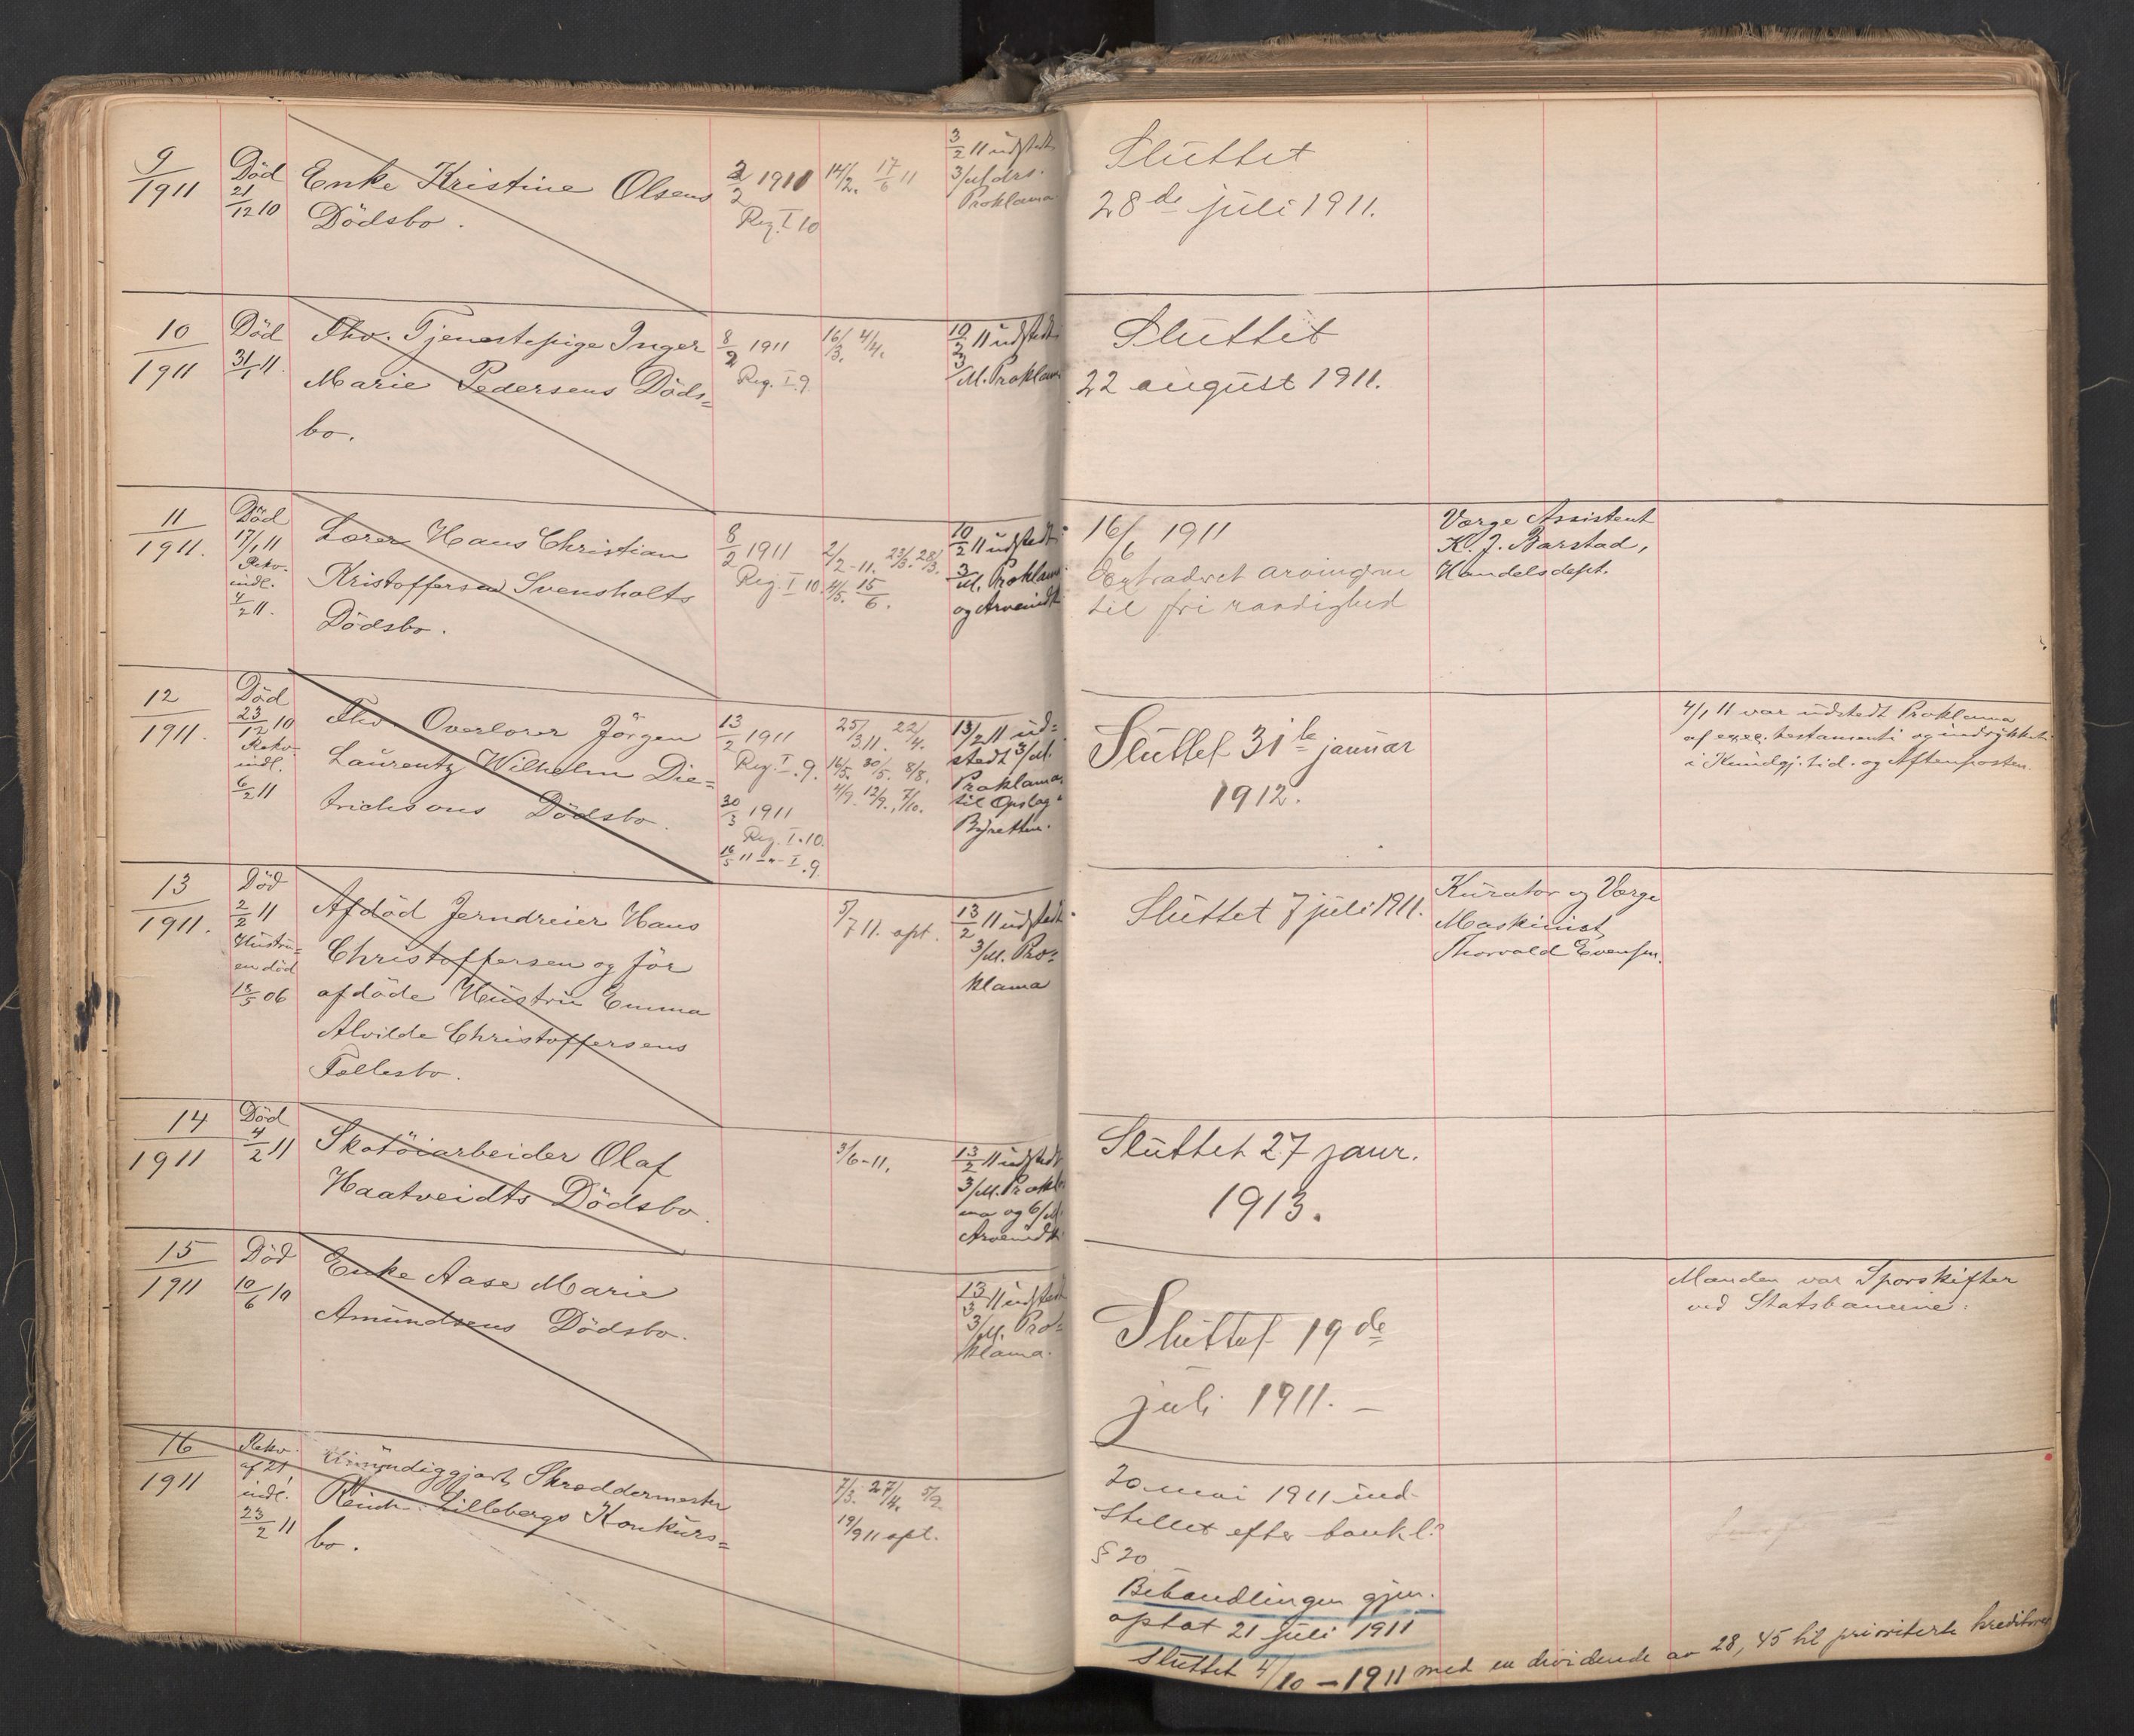 9
1911
Död
21
12 10
Enke Kristine Olsens
Dödsbo.
3
2 1911
Reg. I 10
14/2. 17/6 11
3/2 11 udstedt
3/M drs.
Proklama
Sluttet
28de juli 1911.
10
1911
Död
31/1 11.
Fhv. Tjenestepige Inger
Marie Pedersens Döds=
bo.
8
2 1911
Reg. I. 9.
16/3. 4/4.
10/2 11 udstedt
3/M. Proklama
Sluttet
22 august 1911.
11
1911.
Död
17/1 11
Rekv.
indl.
4/2 11.
Lærer Hans Christian
Kristoffersen Svensholts
Dödsbo.
8
2 1911
Reg. I 10.
2/2-11. 23/3. 28/3.
4/5. 15/6.
10/2 11 udstedt
3/M. Proklama
og Arveindk
16/6 1911
Extraderet arvingerne
til fri raadighed
Værge Assistent
K. J. Barstad,
Handelsdept.
12
1911.
Död
23
12 10
Rekv.
indl.
6/2 11
Fhv. Overlærer Jörgen
Laurentz Wilhelm Die=
trichsons Dödsbo.
13
2 1911
Reg. I. 9.
30
3 1911
Reg. I. 10.
16/5 11 -"- I. 9
25/3 11. 22/4.
16/5. 30/5. 8/8.
4/9. 12/9. 7/10.
13/2 11 ud=
stedt 3/M.
Proklama.
til Opslag
Byretten.
Sluttet 31te januar
1912.
4/1 11 var udstedt Proklama
af exec. testamenti og indrykket
i Kundgj. tid. og Aftenposten.
13
1911.
Död
2/2 11
Hustru=
en död
18/5 06
Afdöd Jerndreier Hans
Christoffersen og för
afdöde Hustru Emma
Alvilde Christoffersens
Fællesbo.
5/7 11. opt.
13/2 11 udstedt
3/M. Pro=
klama
Sluttet 7 juli 1911.
Kurator og Værge
Maskinist
Thorvald Evensen.
14
1911
Död
4/2 11
Skotöiarbeider Olaf
Haatveidts Dödsbo.
3/6-11.
13/2 11 udstedt
3/M. Prokla
ma og 6/M.
Arveindk
Sluttet 27 janr.
1913.
15
1911
Död
10/6 10
Enke Aase Marie
Amundsens Dödsbo.
13/3 11 udstedt
3/M. Pro=
klama.
Sluttet 19de
juli 1911. —
Manden var Sporskifter
ved Statsbanerne.
16
1911
Rekv.
af 21
indl.
23/2 11
Umyndiggjort Skræddermester
Reinh. Lillebergs Konkurs=
bo.
7/3. 27/4. 5/9
19/9 11 opt.
20 mai 1911 ind-
stillet efter konkl.
§ 20
Behandlingen gjen.
optat 21 juli 1911
Sluttet 4/10 - 1911 med en dividende av 28,45 til prioriterte kreditorer